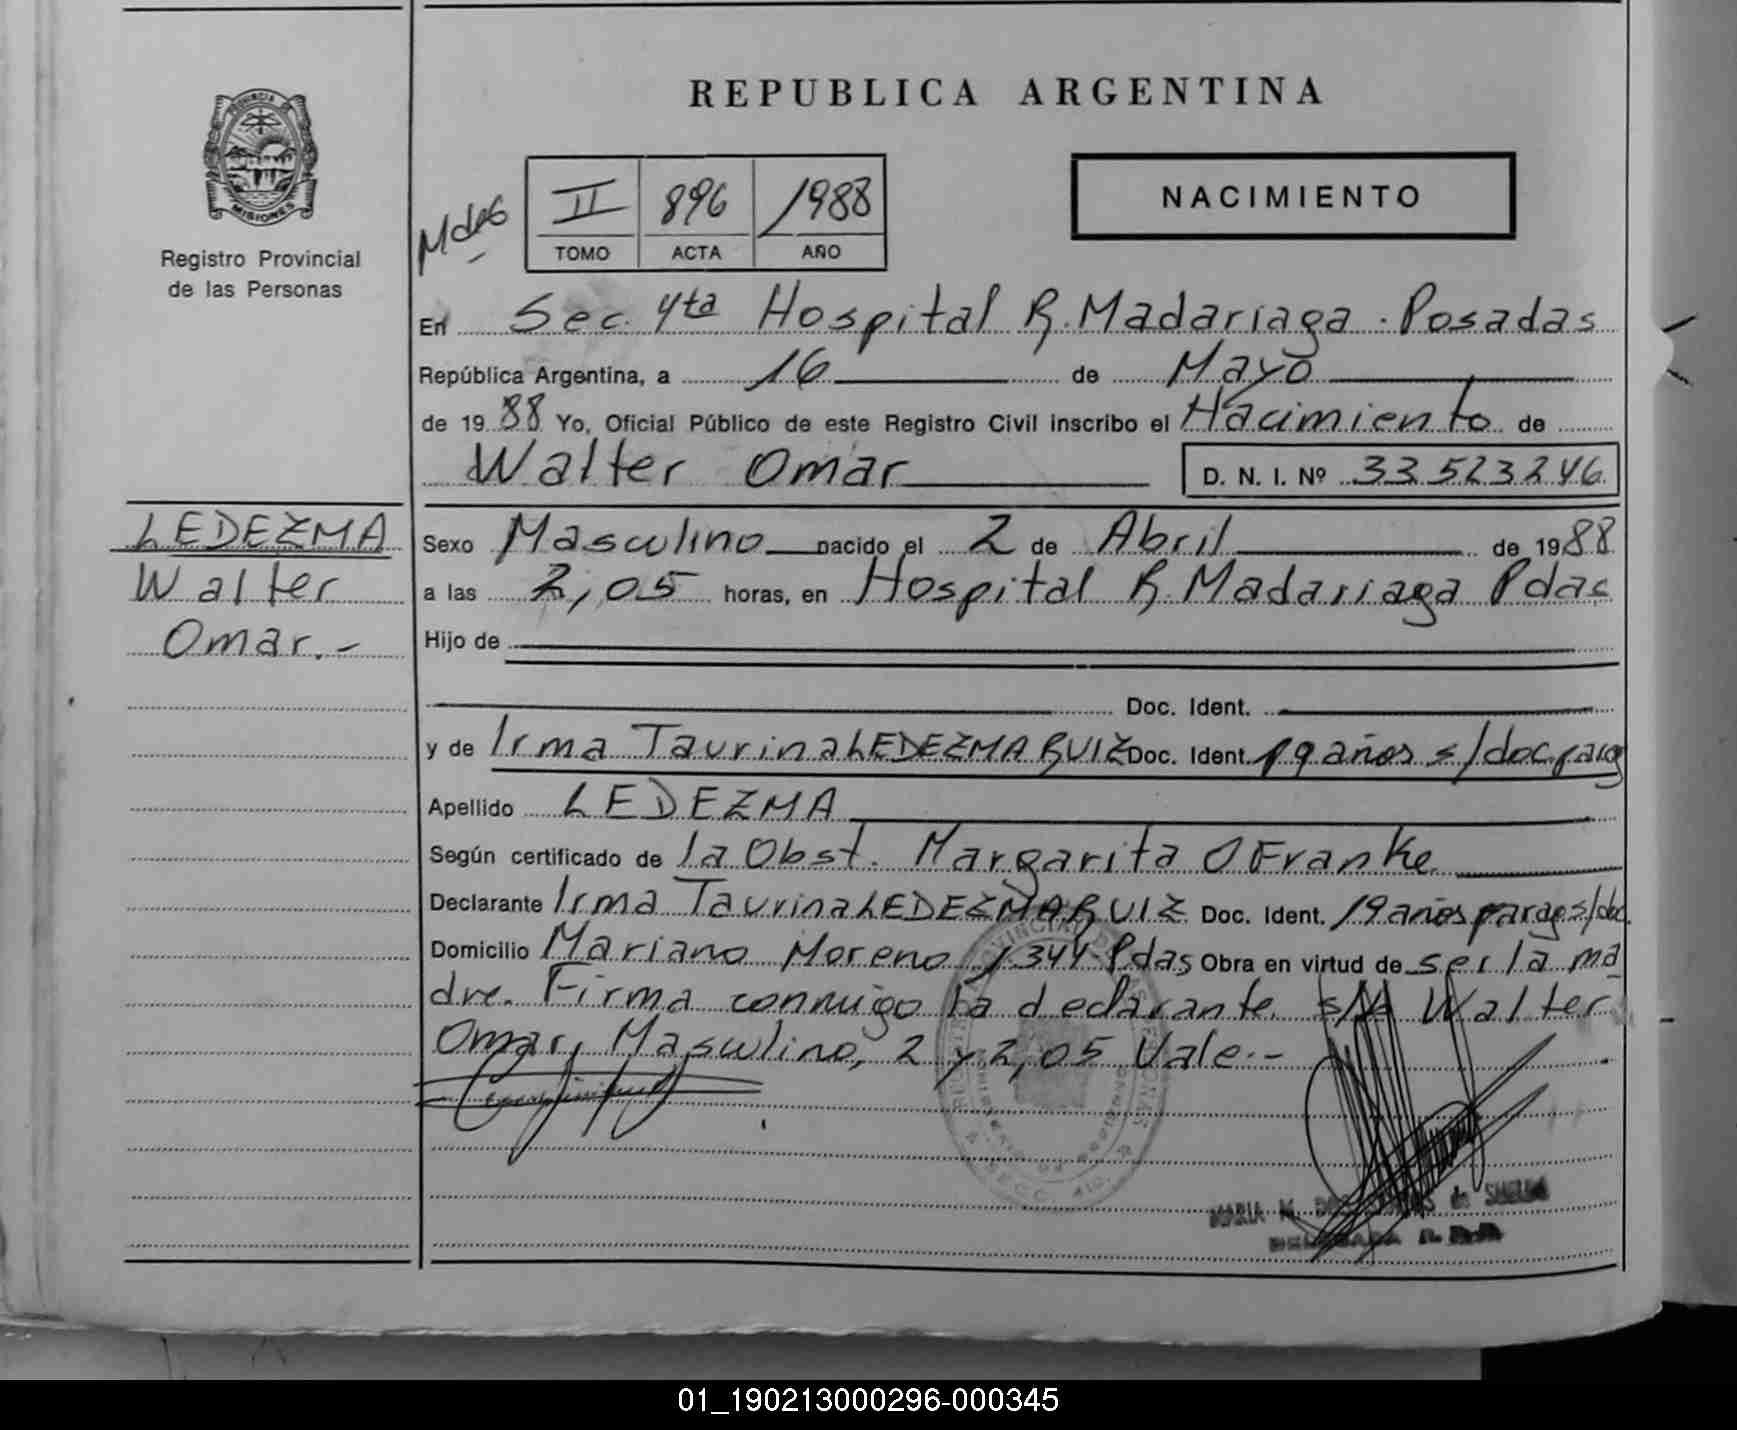 REPUBLICA ARGENTINA
PROVINCIA DE
MISIONES
Registro Provincial
de las Personas
II 896 1988
TOMO ACTA AÑO
NACIMIENTO
En Sec. 4ta Hospital R. Madariaga. Posadas
República Argentina, a 16 de Mayo
de 1988 Yo, Oficial Público de este Registro Civil inscribo el Nacimiento de
Walter Omar D. N. I. Nº 33523246
LEDEZMA
Walter
Omar.-
Sexo Masculino nacido el 2 de Abril de 1988
a las 2,05 horas, en Hospital R. Madariaga Pdas
Hijo de
Doc. Ident.
y de Irma Taurina LEDEZMA RUIZ Doc. Ident. 19 años s/doc. parag
Apellido LEDEZMA
Según certificado de la Obst. Margarita O Franke
Declarante Irma Taurina LEDEZMA RUIZ Doc. Ident. 19 años parag s/doc.
Domicilio Mariano Moreno 1344 Pdas Obra en virtud de ser la ma
dre. Firma conmigo la declarante. s/b Walter
Omar, Masculino, 2 y 2,05 Vale.-
MARIA M. DOS de
01_190213000296-000345